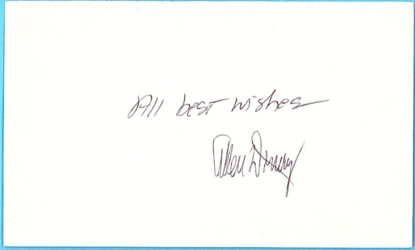 All best wishes
Allen Drury